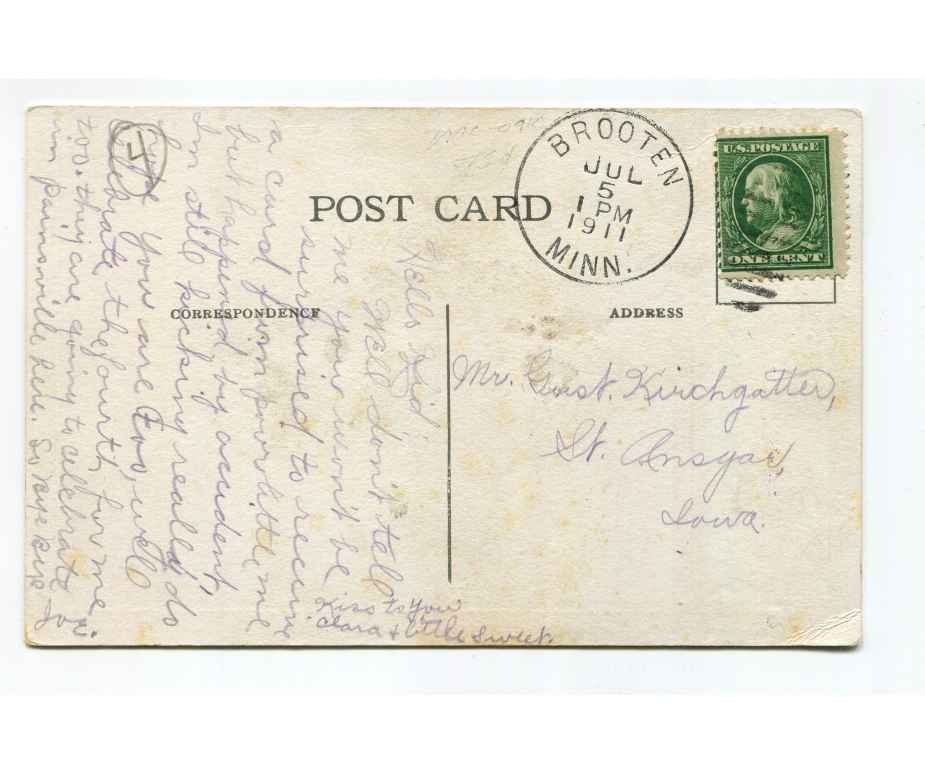 BROOTEN
JUL
5
1 PM
1911
MINN.
U.S. POSTAGE
ONE CENT
POST CARD
CORRESPONDENCE
ADDRESS
Hello Kid.
Well don't tell
me you won't be
surprised to
a card from poor little me
but happend by acident,
Im still kicking do
you are too, well
Celebrate the fourth for me
too. they are going to celebrate
in painsville here. So bye bye
Joe.
Kiss to You
Clara & little Sweet.
Mr. Gust. Kirchgatter,
St. Ansgar,
Iowa.